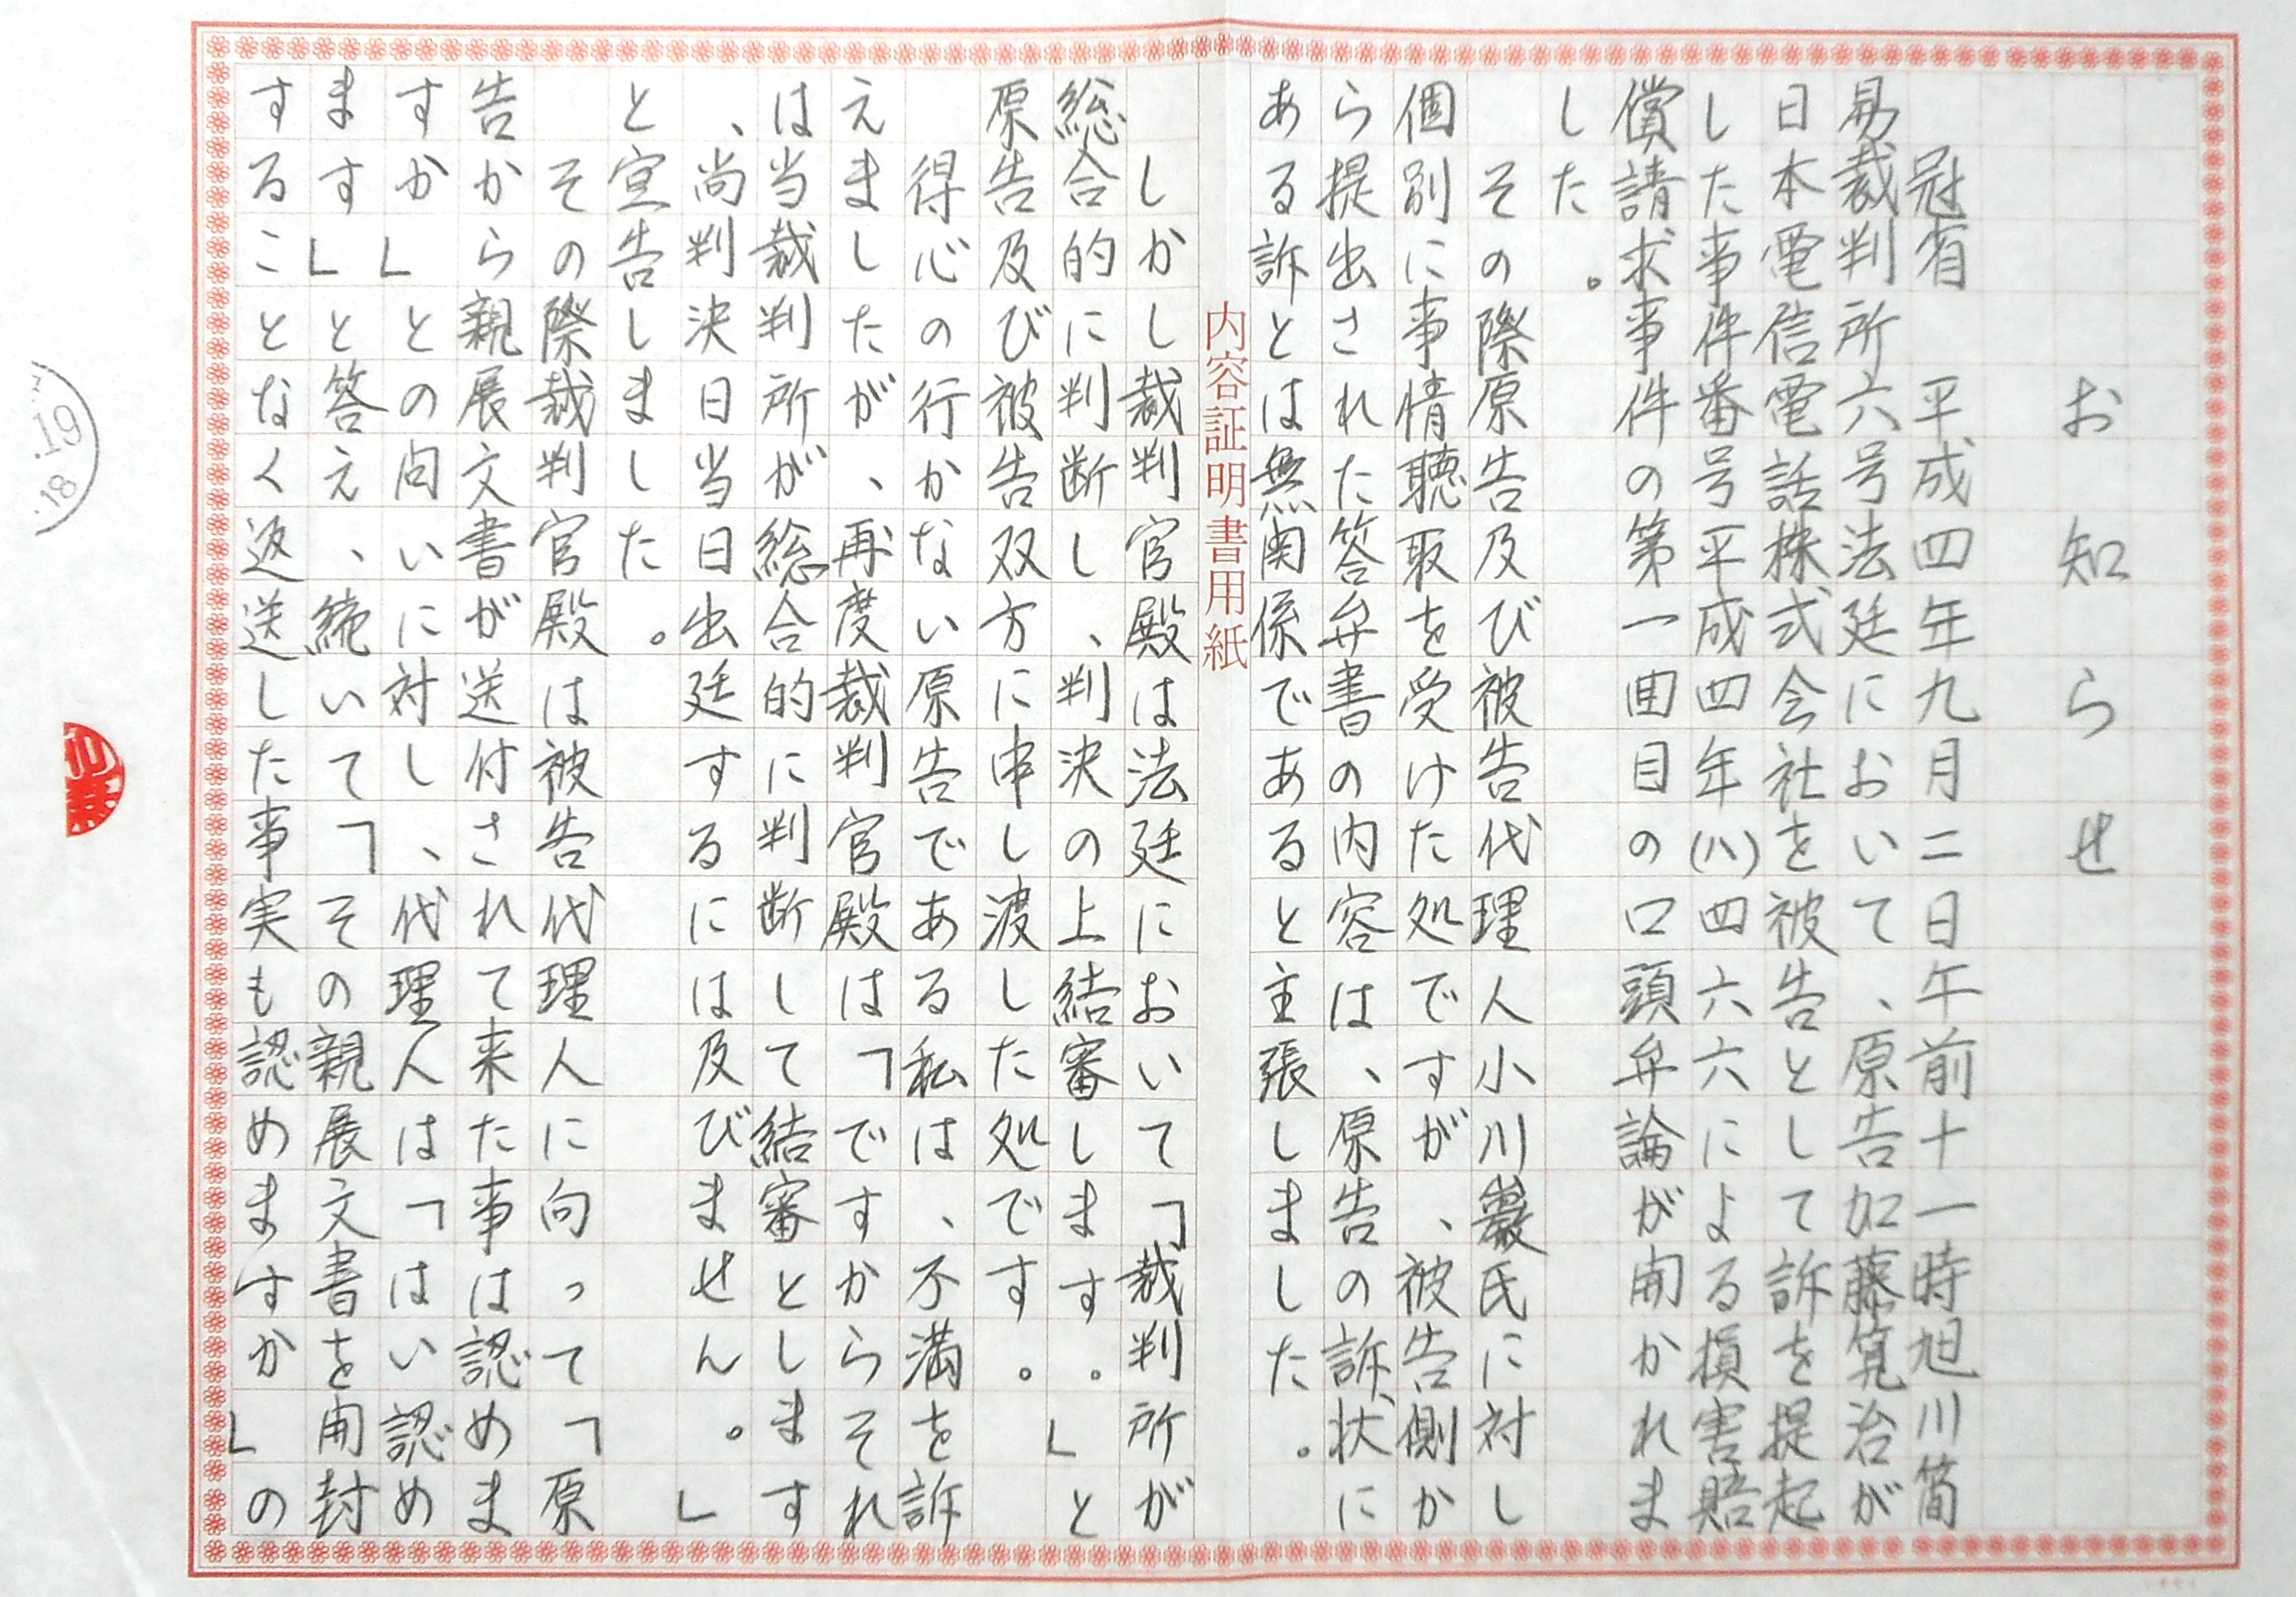 お知らせ
冠省　平成四年九月二日午前十一時旭川簡
易裁判所六号法廷において、原告加藤筧治が
日本電信電話株式会社を被告として訴を提起
した事件番号平成四年(ハ)四六六による損害賠
償請求事件の第一回目の口頭弁論が開かれま
した。
その際原告及び被告代理人小川巖氏に対し
個別に事情聴取を受けた処ですが、被告側か
ら提出された答弁書の内容は、原告の訴状に
ある訴とは無関係であると主張しました。
内容証明書用紙
しかし裁判官殿は法廷において「裁判所が
総合的に判断し、判決の上結審します。」と
原告及び被告双方に申し渡した処です。
得心の行かない原告である私は、不満を訴
えましたが、再度裁判官殿は「ですからそれ
は当裁判所が総合的に判断して結審とします
、尚判決日当日出廷するには及びません。」
と宣告しました。
その際裁判官殿は被告代理人に向って「原
告から親展文書が送付されて来た事は認めま
すか」との問いに対し、代理人は「はい認め
ます」と答え、続いて「その親展文書を開封
することなく返送した事実も認めますか」の
19
.18